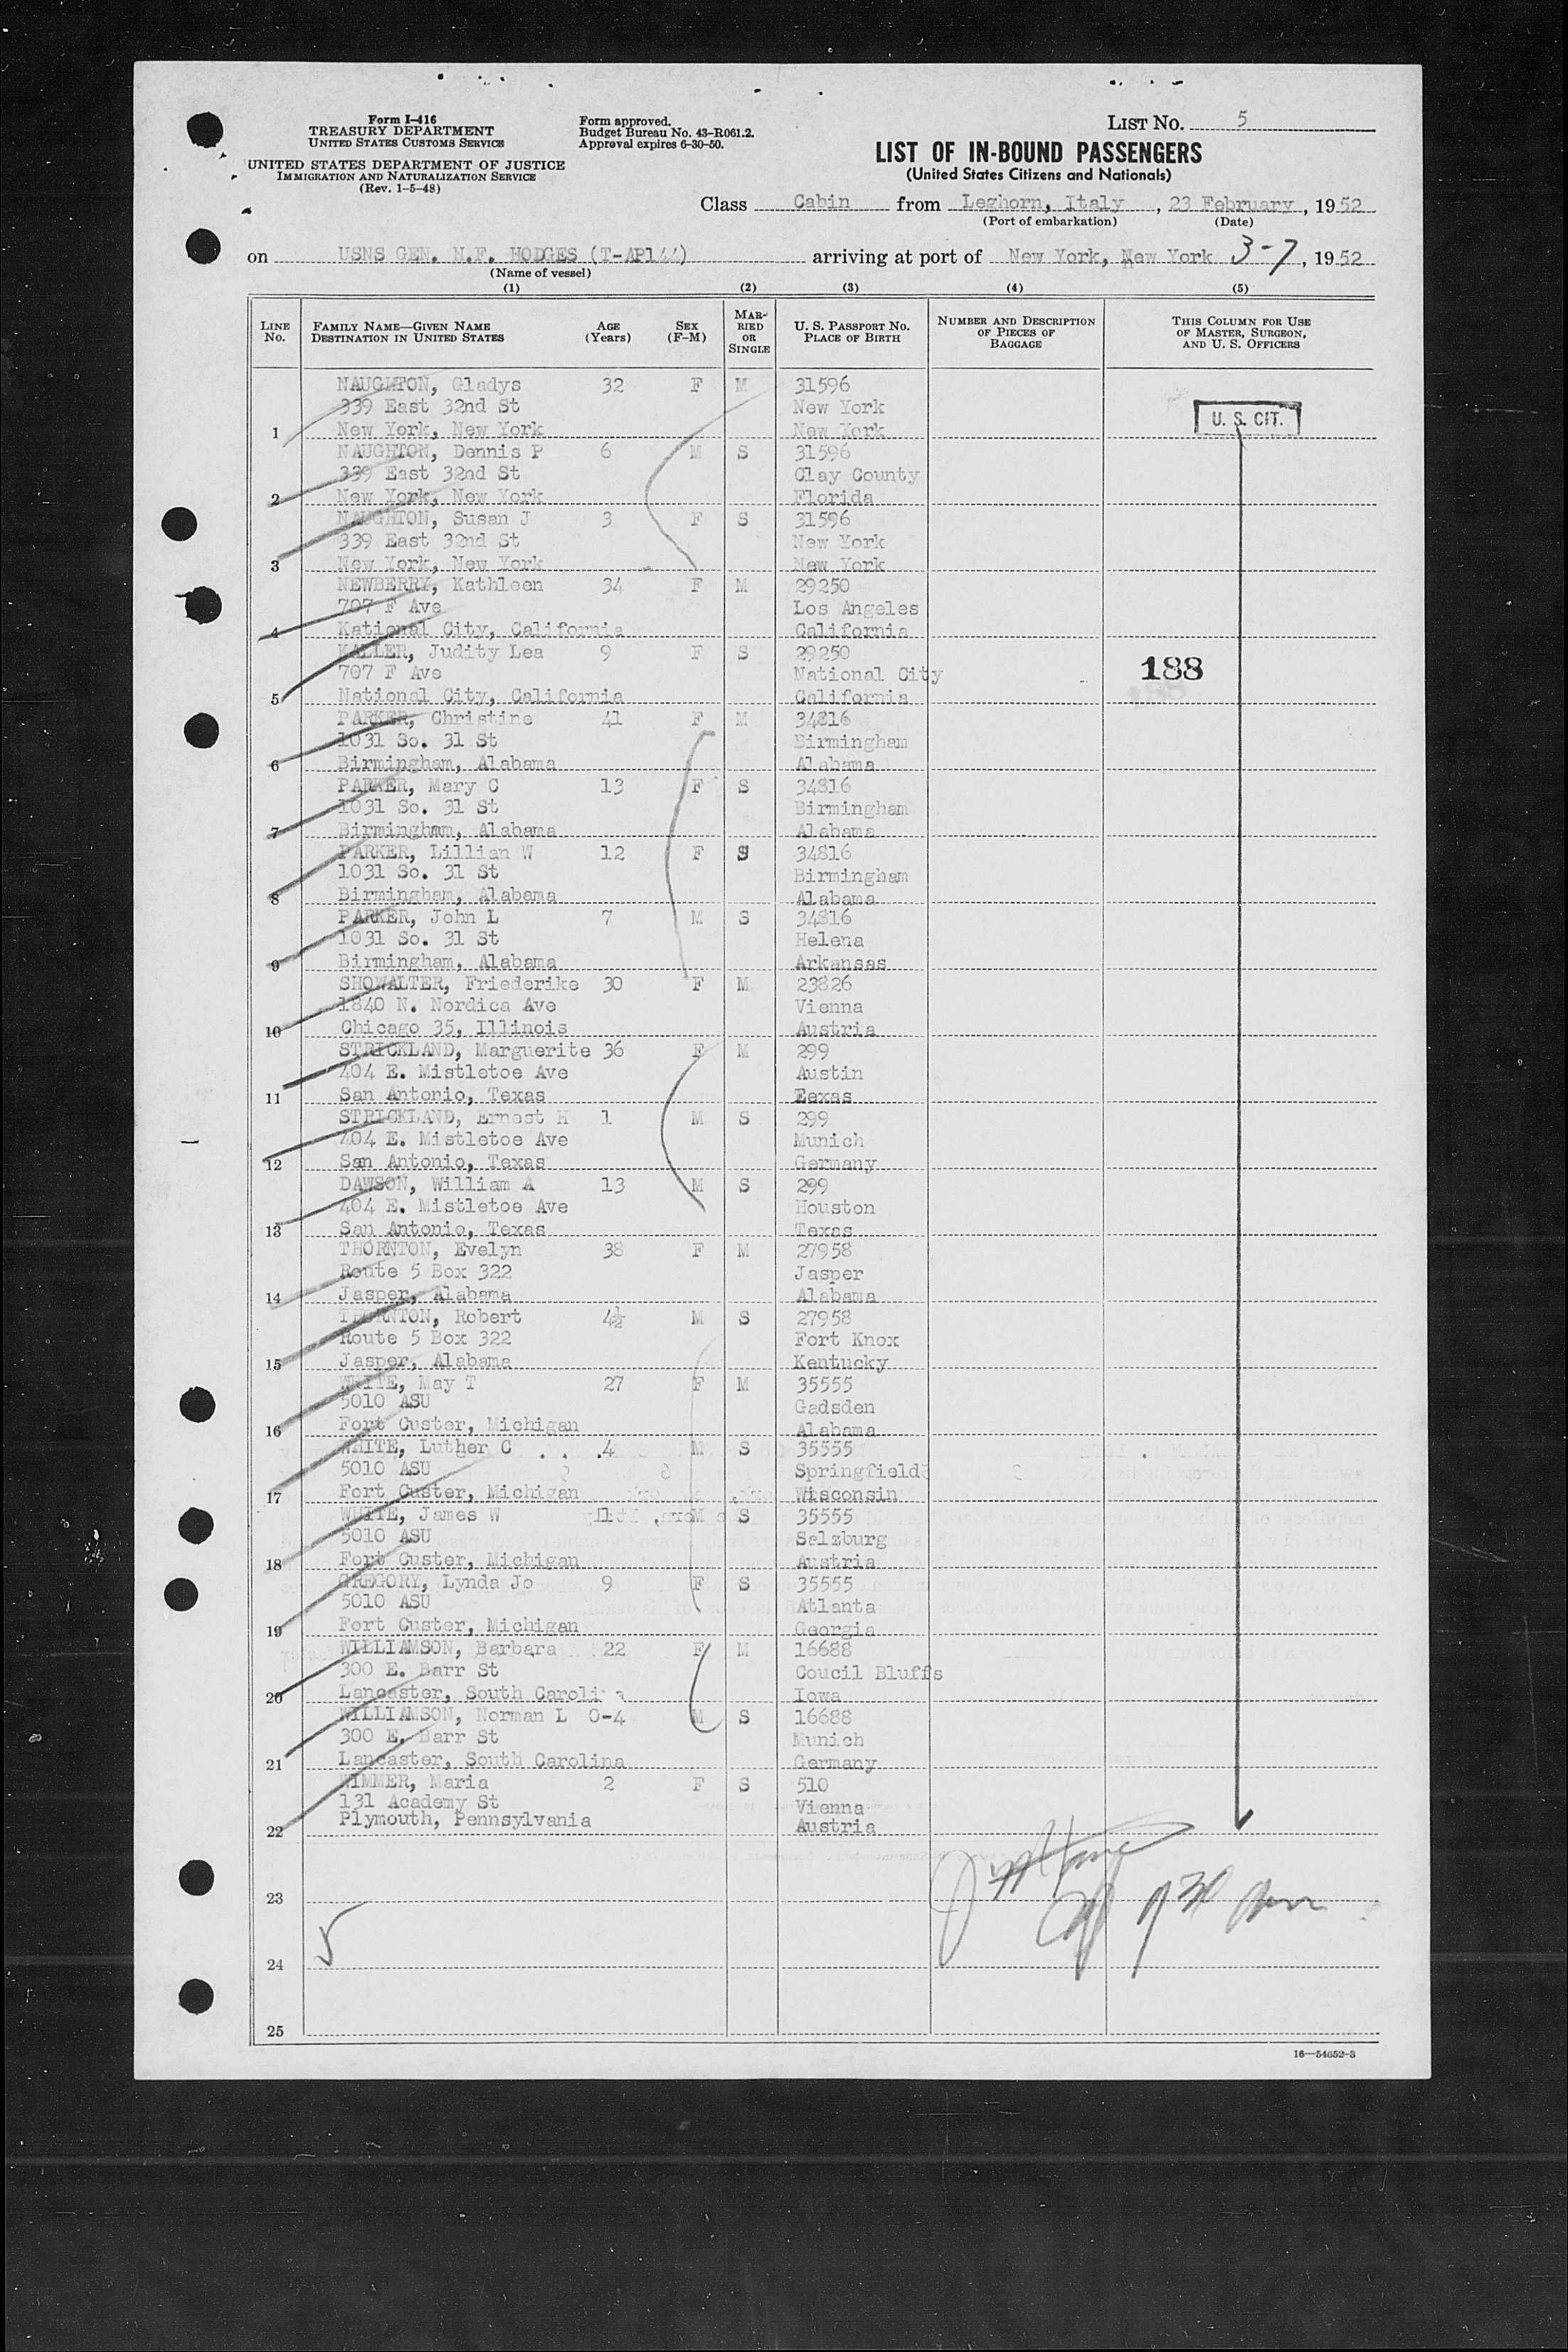 Form I-416
TREASURY DEPARTMENT
UNITED STATES CUSTOMS SERVICE
UNITED STATES DEPARTMENT OF JUSTICE
IMMIGRATION AND NATURALIZATION SERVICE
(Rev. 1-5-48)
Form approved.
Budget Bureau No. 43-R061.2.
Approval expires 6-30-50.
LIST NO. 5
LIST OF IN-BOUND PASSENGERS
(United States Citizens and Nationals)
Class Cabin from Leghorn, Italy, 23 February, 1952
(Port of embarkation) (Date)
on USNS GEN. M.F. HODGES (T-AP144) arriving at port of New York, New York 3-7, 1952
(Name of vessel)
(1) (2) (3) (4) (5)
LINE NO. FAMILY NAME—GIVEN NAME DESTINATION IN UNITED STATES AGE (Years) SEX (F-M) MARRIED OR SINGLE U. S. PASSPORT NO. PLACE OF BIRTH NUMBER AND DESCRIPTION OF PIECES OF BAGGAGE THIS COLUMN FOR USE OF MASTER, SURGEON, AND U. S. OFFICERS
NAUGHTON, Gladys 32 F M 31596
339 East 32nd St New York U. S. CIT.
1 New York, New York New York
NAUGHTON, Dennis P 6 M S 31596
339 East 32nd St Clay County
2 New York, New York Florida
NAUGHTON, Susan J 3 F S 31596
339 East 32nd St New York
3 New York, New York New York
NEWBERRY, Kathleen 34 F M 29250
707 F Ave Los Angeles
4 Kational City, California California
KALLER, Judity Lea 9 F S 29250
707 F Ave National City 188
5 National City, California California
PARKER, Christine 41 F M 34816
1031 So. 31 St Birmingham
6 Birmingham, Alabama Alabama
PARKER, Mary C 13 F S 34816
1031 So. 31 St Birmingham
7 Birmingham, Alabama Alabama
PARKER, Lillian W 12 F S 34816
1031 So. 31 St Birmingham
8 Birmingham, Alabama Alabama
PARKER, John L 7 M S 34816
1031 So. 31 St Helena
9 Birmingham, Alabama Arkansas
SHOWALTER, Friederike 30 F M 23826
1840 N. Nordica Ave Vienna
10 Chicago 35, Illinois Austria
STRICKLAND, Marguerite 36 F M 299
404 E. Mistletoe Ave Austin
11 San Antonio, Texas Eexas
STRICKLAND, Ernest H 1 M S 299
404 E. Mistletoe Ave Munich
12 San Antonio, Texas Germany
DAWSON, William A 13 M S 299
404 E. Mistletoe Ave Houston
13 San Antonio, Texas Texas
THORNTON, Evelyn 38 F M 27958
Route 5 Box 322 Jasper
14 Jasper, Alabama Alabama
THORNTON, Robert 4½ M S 27958
Route 5 Box 322 Fort Knox
15 Jasper, Alabama Kentucky
WHITE, May T 27 F M 35555
5010 ASU Gadsden
16 Fort Custer, Michigan Alabama
WHITE, Luther C 4 M S 35555
5010 ASU Springfield
17 Fort Custer, Michigan Wisconsin
WHITE, James W M S 35555
5010 ASU Salzburg
18 Fort Custer, Michigan Austria
GREGORY, Lynda Jo 9 F S 35555
5010 ASU Atlanta
19 Fort Custer, Michigan Georgia
WILLIAMSON, Barbara 22 F M 16688
300 E. Barr St Coucil Bluffs
20 Lancaster, South Carolina Iowa
WILLIAMSON, Norman L 0-4 M S 16688
300 E. Barr St Munich
21 Lancaster, South Carolina Germany
WIMMER, Maria 2 F S 510
131 Academy St Vienna
22 Plymouth, Pennsylvania Austria
23
5
24
25
16—54652-3